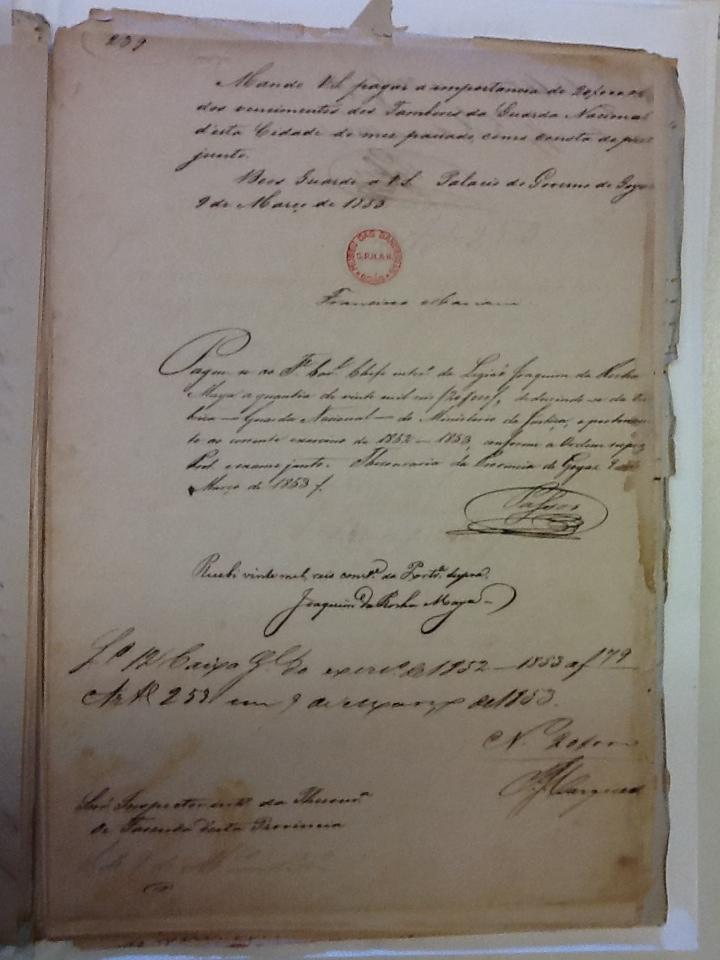 239
Mande V.S. pagar a importancia de 20$000 rs
dos vencimentos dos Tambores da Guarda Nacional
d'esta Cidade do mez passado, como consta do pret
junto.
Deos Guarde a V.S. Palacio do Governo de Goyaz
9 de Março de 1853
MUSEU DAS BANDEIRAS
S.P.H.A.N.
GOIÁS
Francisco Mariani
Pague-se ao Cor.el Chefe de Legião Joaquim da Rocha
Maya a quantia de vinte mil reis deduzindo-se da
Guarda Nacional do Ministerio da Justiça, e pertencen
te ao corrente exercicio de 1852-1853, conforme a Ordem
e exame junto. Thesouraria da Provincia de Goyaz 9 de
Março de 1853
Recebi vinte mil reis da Port.a supra.
Joaquim da Rocha Maya
Caixa G.l do exerc.o de 1852-1853 a f 179
253 em 9 de Março de 1853.
Snr. Inspector da Thesour.a
de Fazenda desta Provincia